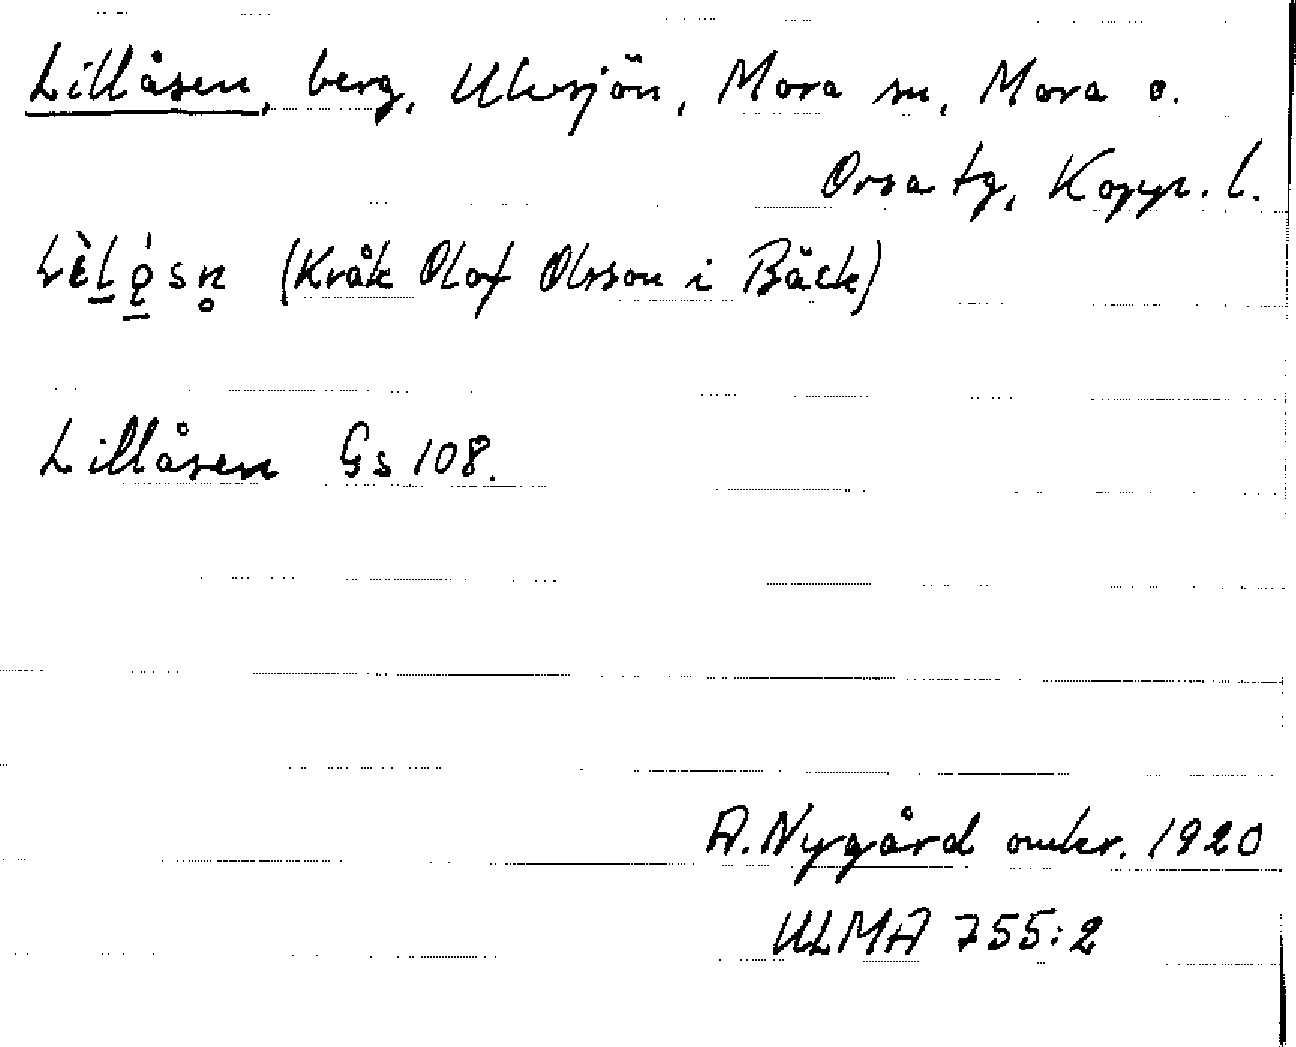 Lillåsen, berg, Ulvsjön, Mora sn, Mora o.
Orsa tg, Kopp. l.
(Kråk Olof Olsson i Bäck)
Lillåsen Gs 108.
A. Nygård omkr. 1920
ULMA 755:2